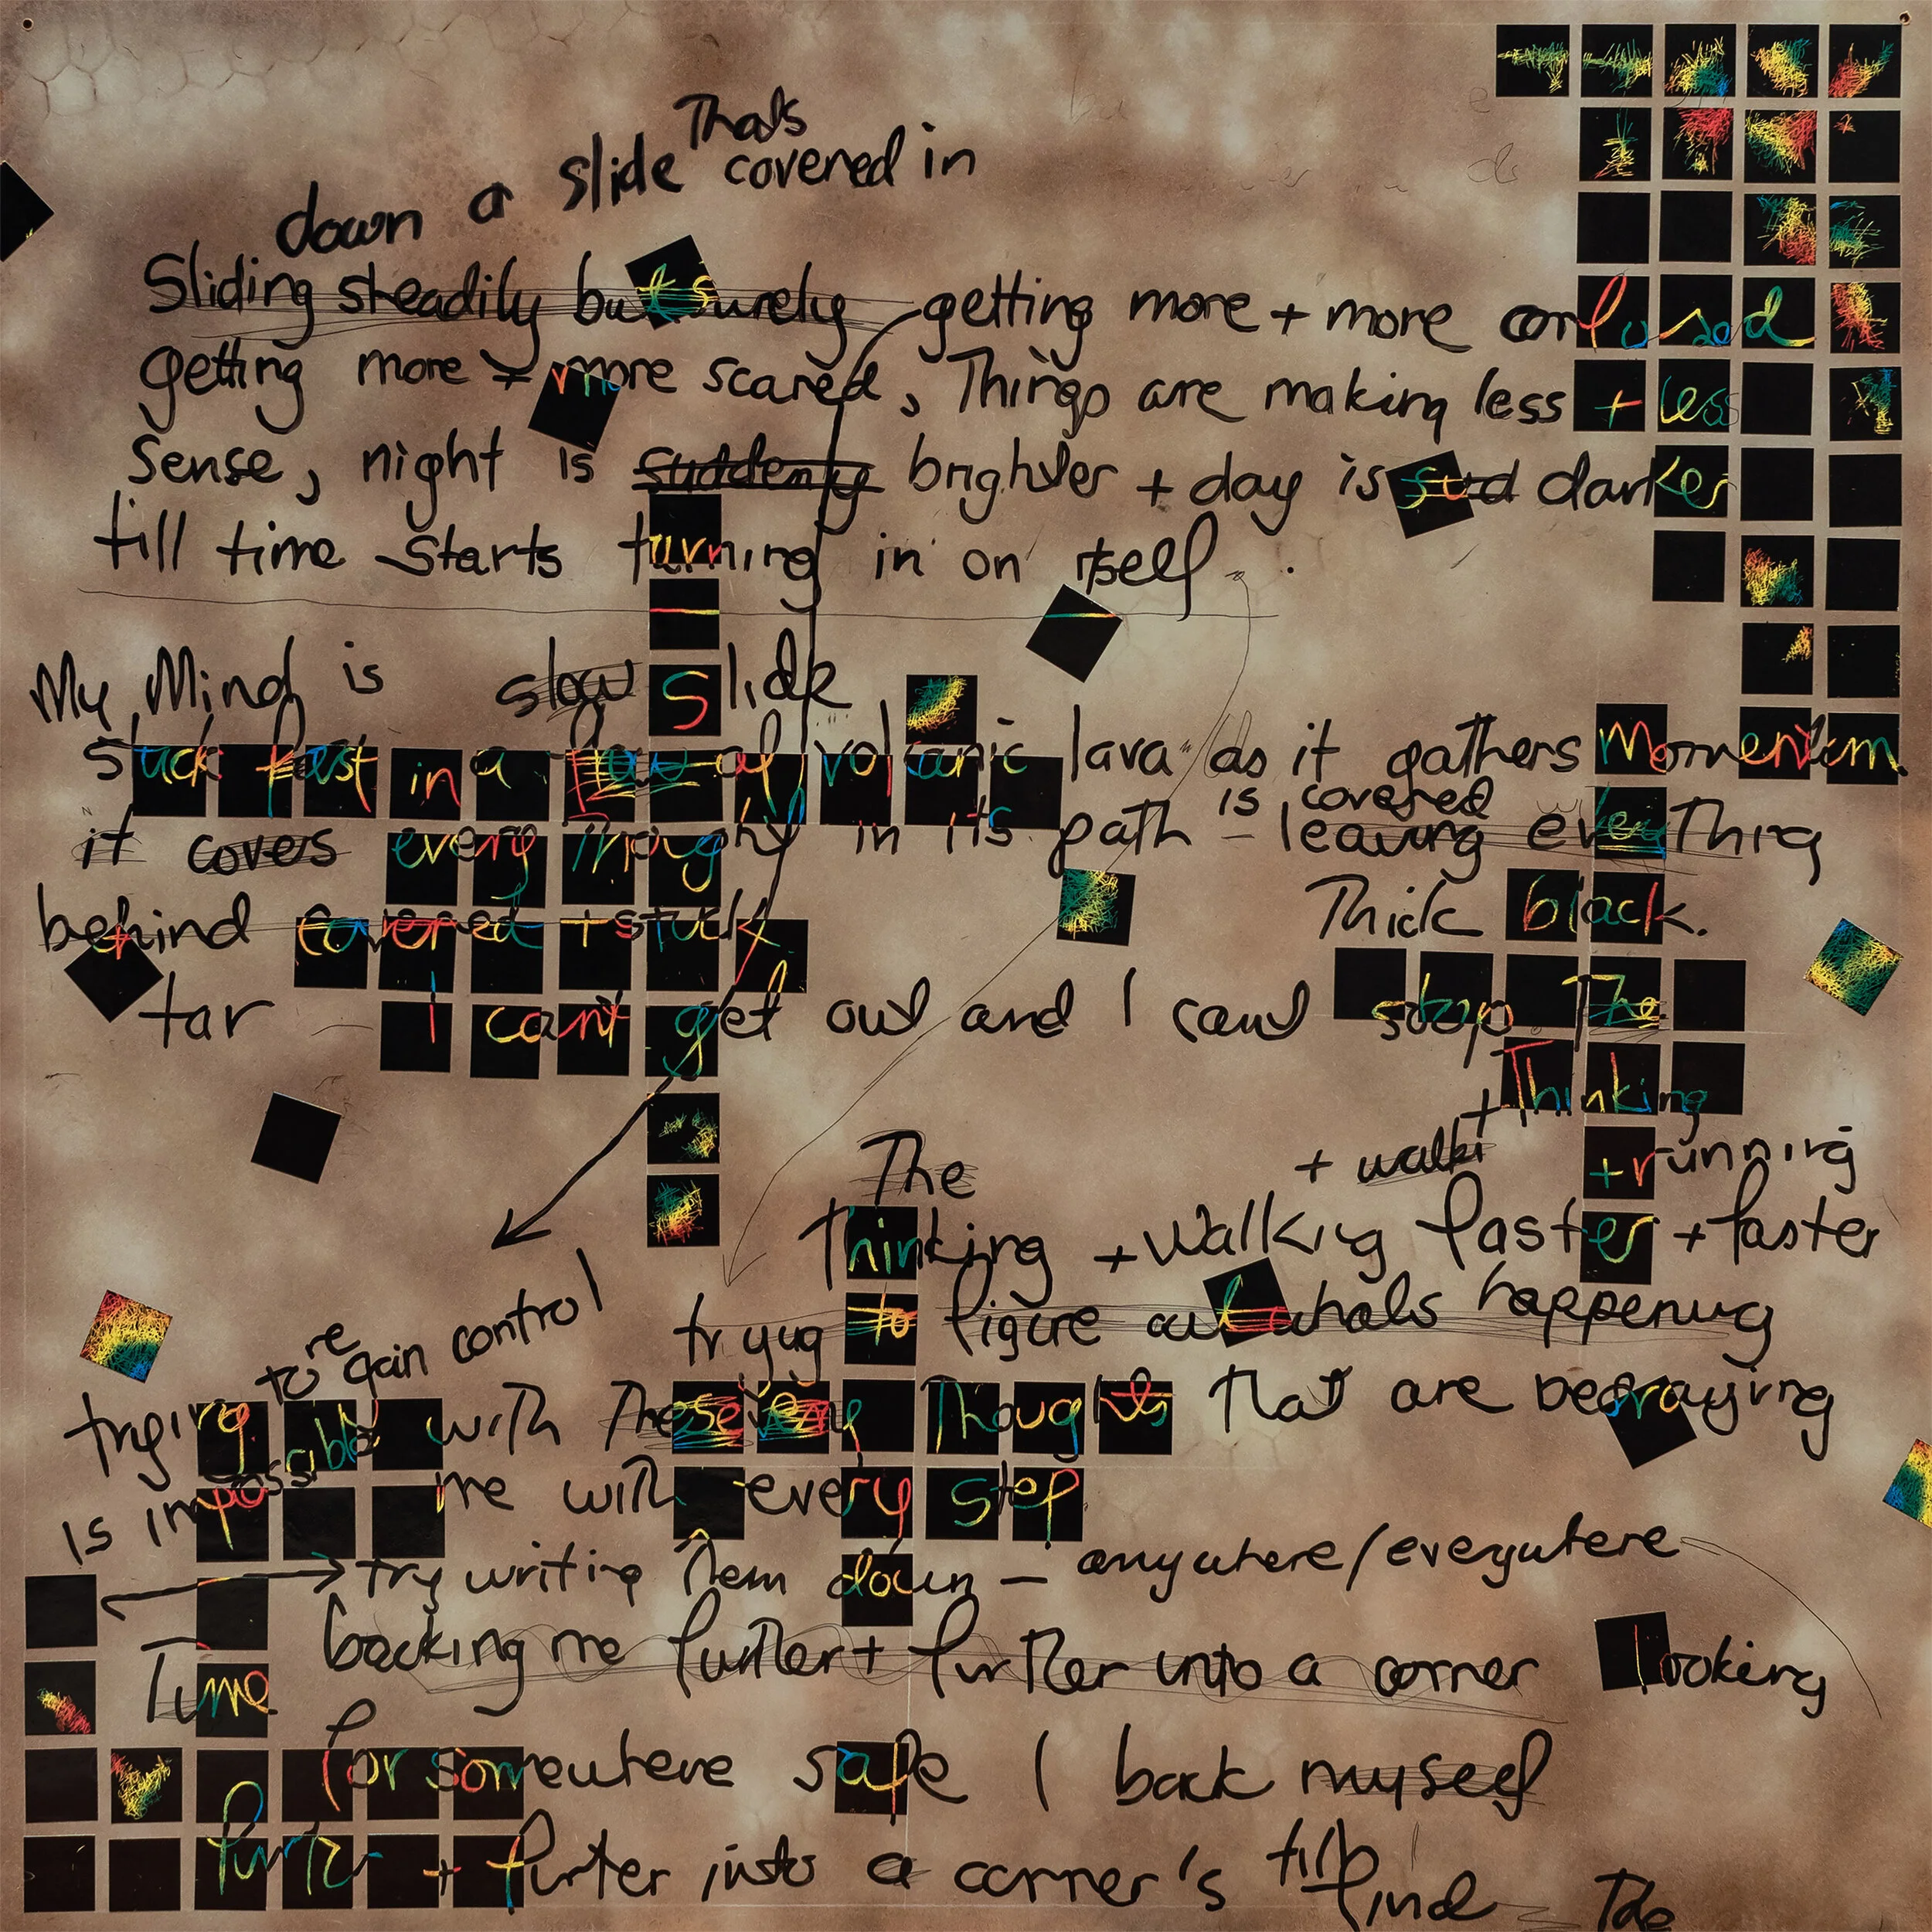 Thats
down a slide covered in
Sliding steadily but surely getting more + more confused
getting more + more scared, Things are making less + less
Sense, night is suddenly brighter + day is sud darker
till time starts turning in on itself.
My Mind is slow slide
stuck fast in a flow of volcanic lava as it gathers Momentum.
is covered
it coves every thought in its path - leaving everything
behind covered + stuck Thick black.
tar I cant get out and I cant stop The
Thinking
+ walki + + running
The
Thinking + walking faster + faster
to regain control trying to figure out whats happening
trying with These very Thoughts that are betraying
is impossible me with every step
try writing them down - anywhere/everywhere
Time backing me further + further into a corner looking
for somewhere safe I back myself
further + further into a corner's till I find